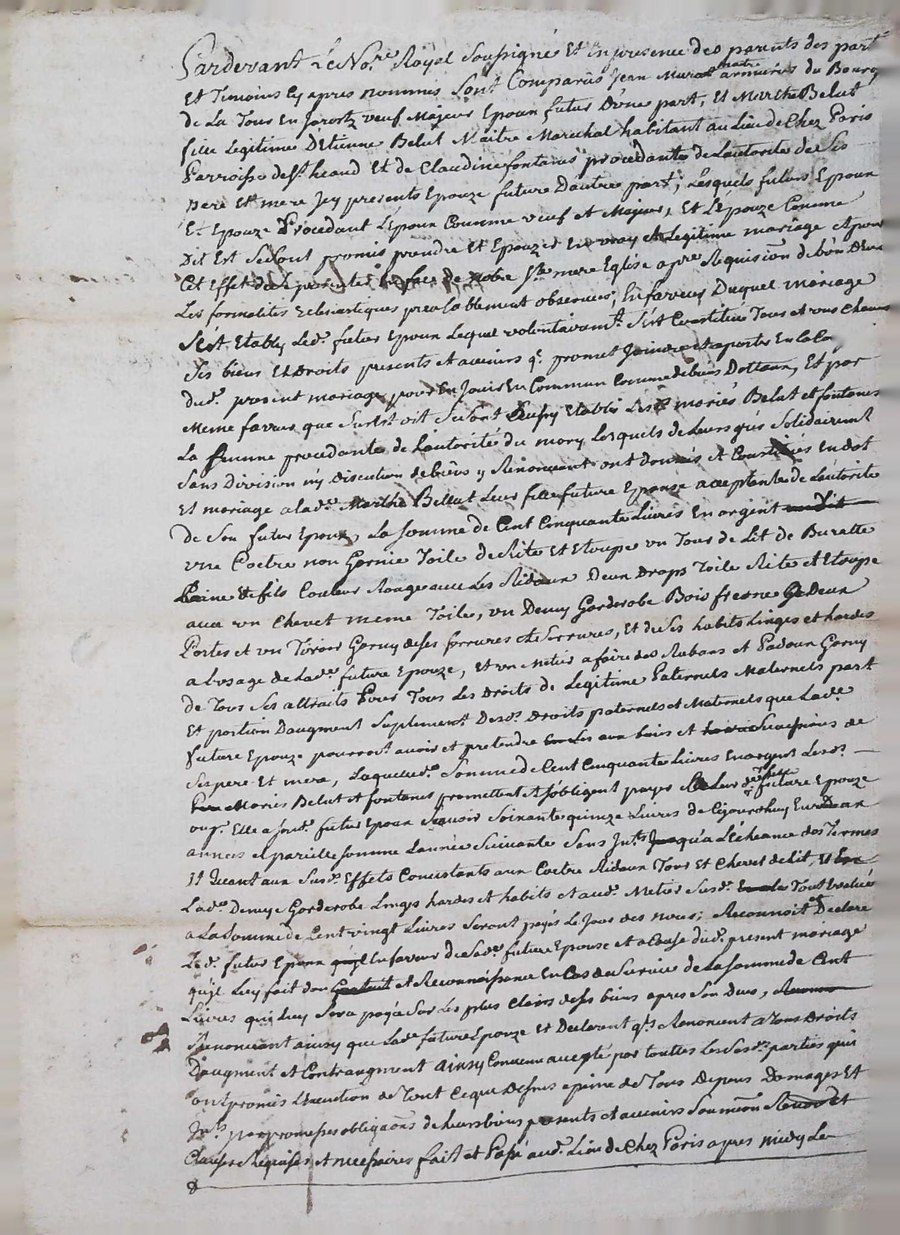 Pardevant Le No.re Royal Soussigné Et En presence des parents des part
Et Temoins Cy apres nommés Sont Comparus Jean Murat maitre armurier du Bourg
de La Tour En Jarorts veuf Majeur Epoux futur D'une part, Et Marthe Belut
fille Legitime D'Etienne Belut Maitre Marechal habitant au Lieu de Chez Paris
Parroisse de St. heand Et de Claudine fontanes procedante de Lautorité de Ses
pere Et mere Icy presents Epouze future Dautre part; Lesquels futurs Epoux
Et Epouze Procedant L'Epoux Comme veuf et Majeur, Et L'Epouze Comme
Dit Est Se Sont promis prendre Et Epouzer En vray et Legitime mariage Et pour
Cet Effet Se presenter En face de Notre Ste mere Eglise a pre Requision de L'un D'eux
Les formalités Eclesiastiques prealablement observées; En faveur Duquel mariage
S'est Etably Led. futur Epoux Lequel volontairemt. S'est Constitué Tous et uns Chacuns
Ses biens Et Droits presents et avenirs q. promet Joindre et aporter En
dud. present mariage pour En Jouir En Commun Comme de biens Dottaux, Et par
Meme faveur que Surst Se Sont Etablis Lesd. mariés Belut et fontanes
La femme procedante de Lautorité du mary Lesquels de Leurs grés Solidairemt
Sans Division ny Discution de biens y Renoncant ont Donnés et Constitués En dot
Et mariage a Lad. Marthe Bellut Leur fille future Epouse acceptante de Lautorité
de Son futur Epoux, La Somme de Cent Cinquante Livres En argent
une Coetre non Garnie Toile de Rite Et Etoupe un Tour de Lit de Buratte
Laine Et fils Couleur Rouge avec Les Rideaux Deux Draps Toile Rite Et Etoupe
avec un Chevet meme Toile, un Demy Garderobe Bois fresne De Deux
Portes et un Tiroir Garny de Ses ferrures et Serrures, Et de Ses habits Linges et hardes
a Lusage de Lad. future Epouze, Et un Metier a faire des Rubans et Padoux Garny
de Tous Ses attraits Pour Tous Les Droits de Legitime Paternels Maternels part
Et portion Daugment Suplement Desd. Droits paternels et Maternels que Lad.
future Epouze pourroit avoir et pretendre aux biens et Successions de
Ses pere Et mere, Laquelle Somme de Cent Cinquante Livres En argent Lesd.
Mariés Belut et fontanes promettent et Sobligent payer a Leur fille future Epouze
oup. Elle a Sond. futur Epoux Scavoir Soixante quinze Livres de Cejourdhuy En Deux
années et pareille Somme Lannée Suivante Sans Jnts. Jusqu'a L'Echeance des Termes
Et Quant aux Susd. Effets Concistants aux Coetre Rideaux Tour Et Chevet de Lit,
Lad. Demye Garderobe Linges hardes et habits et aud. Metier Susd. Le Tout Evalué
a La Somme de Cent vingt Livres Seront payés Le Jour des noces; Reconnoit et Declare
Led. futur Epoux En faveur de Lad. future Epouse et a Cause dud. present mariage
quil Luy fait don et Reconnaissance En Cas de Survie de La Somme de Cent
Livres qui Luy Sera payée Sur Les plus Clairs de Ses biens apres Son Deces,
Renoncant ainsy que Lad. future Epouze Et Declarent qls. Renoncent a Tous Droits
Daugment et Contraugment ainsy Convenu accepté par touttes Les Susd. parties qui
ont promis L'execution de Tout Ceque Dessus a peine de Tous Depens Domages Et
Jnts. par promesses obligaons de Leurs biens presents et avenirs Soumion
Clauses Requises et necessaires fait et Passé aud. Lieu de Chez Paris apres midy Le